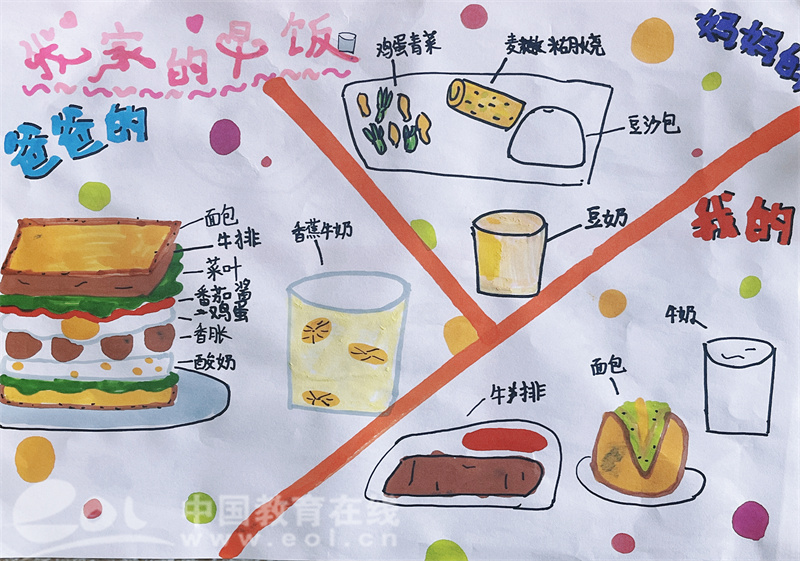 我家的早饭
妈妈的
爸爸的
我的
鸡蛋青菜
豆沙包
豆奶
面包
牛排
菜叶
番茄酱
鸡蛋
香肠
酸奶
香蕉牛奶
牛奶
面包
牛排
eol 中国教育在线
www.eol.cn